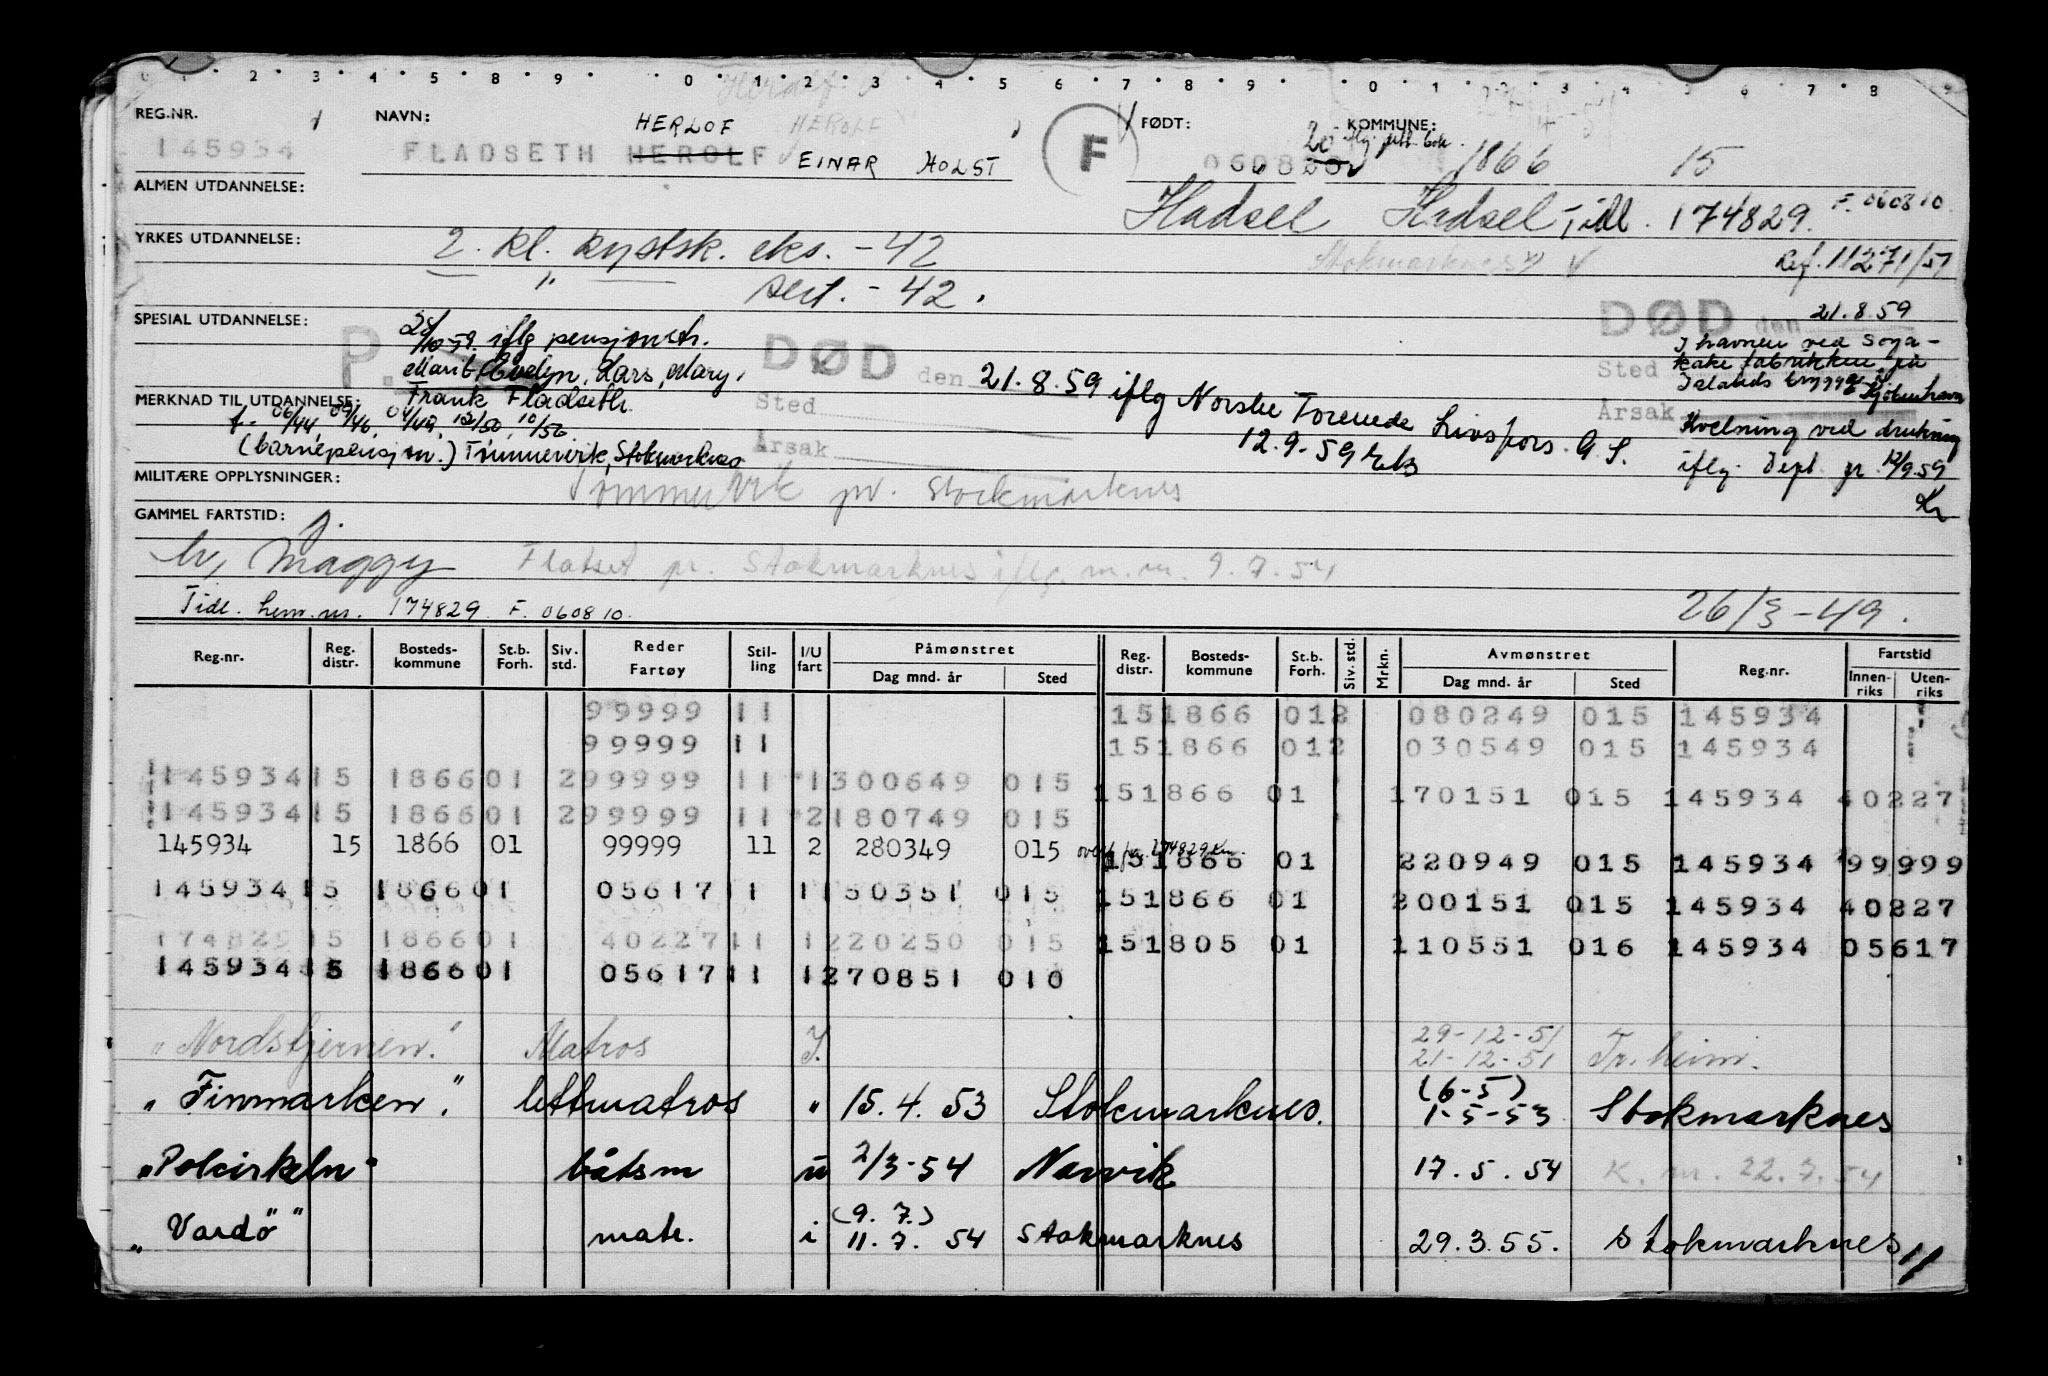 1 2 3 4 5 8 9 0 1 2 3 4 5 6 7 8 9 0 1 2 3 4 5 6 7 8
REG.NR. NAVN: HERLOF HEROLF F FØDT: 20 iflg. KOMMUNE:
145934 FLADSETH HEROLF EINAR HOLST 060820 1866 15
ALMEN UTDANNELSE: Hadsel Hadsel Tidl. 174829. F. 060810
YRKES UTDANNELSE: 2. kl. kystsk. eks. - 42 Stokmarknes Ref. 11271/51
" sert. - 42.
SPESIAL UTDANNELSE: P. 28/10-59. iflg pensjonstr.
Marit Evelyn, Lars, Mary,
Frank Fladseth
MERKNAD TIL UTDANNELSE:
f. 06/44, 09/46, 04/49, 12/50, 10/56
(barnepensj m.) Tømmervik, Stokmarknes
DØD den 21.8.59 iflg Norske Forenede Livsfors. A.S.
Sted 12.9-59
Årsak
DØD den 21.8.59
Sted I havnen ved Soya-
kake fabrikken på
Islands brygge, Kjøbenhavn
Årsak Kvelning ved drukning
iflg. Dept. gr. 12/9.59
Kr
MILITÆRE OPPLYSNINGER: Tømmervik pr. Stockmarknes
GAMMEL FARTSTID: g.
Maggy Flatset pr. Stokmarknes iflg. m.m. 9.7.54
Tidl. hem.nr. 174829 F. 060810. 26/3-49.
Reg.nr. Reg. distr. Bosteds- kommune St.b. Forh. Siv. std. Reder Fartøy Stil- ling I/U fart Påmønstret Dag mnd. år Sted Reg. distr. Bosteds- kommune St.b. Forh. Siv. std. Mrkn. Avmønstret Dag mnd. år Sted Reg.nr. Fartstid Innen- riks Uten- riks
99999 11 15 1866 012 080249 015 145934
99999 11 15 1866 012 030549 015 145934
145934 15 1866 01 2 99999 11 1 300649 015 15 1866 01 170151 015 145934 40227
145934 15 1866 01 2 99999 11 2 180749 015
145934 15 1866 01 99999 11 2 280349 015 174829 15 1866 01 220949 015 145934 99999
145934 15 1866 01 05617 11 1 150351 015 15 1866 01 200151 015 145934 40227
174829 15 1866 01 40227 11 1 220250 015 15 1805 01 110551 016 145934 05617
145934 15 1866 01 05617 11 1 270851 010
"Nordstjernen." Matros I. 29-12-51
21-12-51 Tr.heim.
"Finmarken." lettmatros " 15.4.53 Stokmarknes. (6-5)
1-5-53 Stokmarknes
"Polcirkeln" båtsm u 2/3-54 Narvik 17.5.54 K. m. 22.7.54
"Vardö" matr. i (9.7.)
11.7.54 Stokmarknes 29.3.55. Stokmarknes